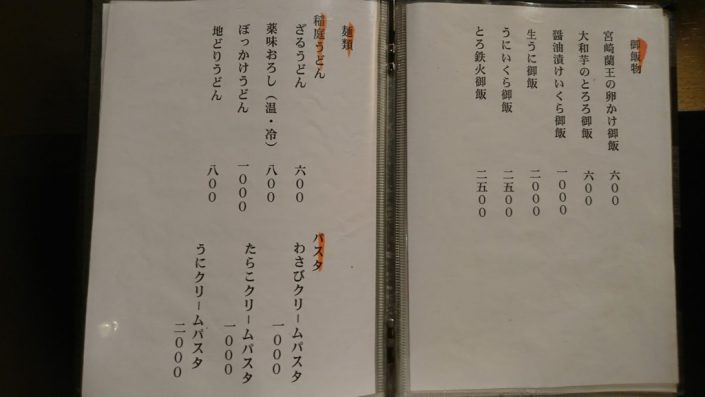 御飯物
宮崎蘭王の卵かけ御飯 六〇〇
大和芋のとろろ御飯 六〇〇
醤油漬けいくら御飯 一〇〇〇
生うに御飯 二〇〇〇
うにいくら御飯 二五〇〇
とろ鉄火御飯 二五〇〇
麺類
稲庭うどん
ざるうどん 六〇〇
薬味おろし（温・冷） 八〇〇
ぼっかけうどん 一〇〇〇
地どりうどん 八〇〇
パスタ
わさびクリームパスタ 一〇〇〇
たらこクリームパスタ 一〇〇〇
うにクリームパスタ 二〇〇〇